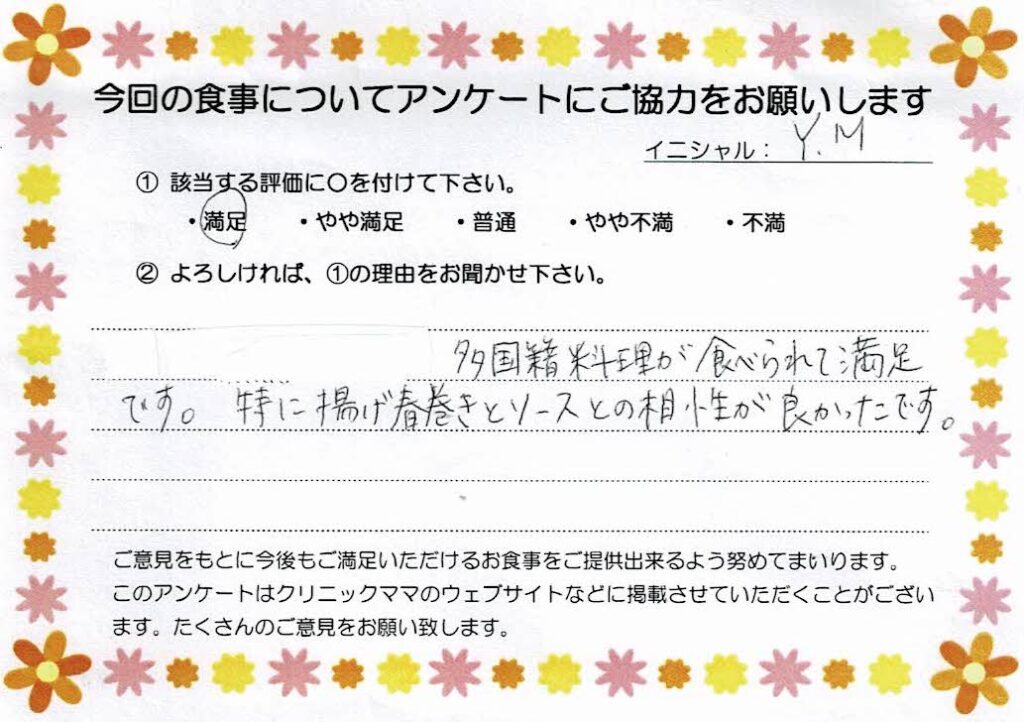 今回の食事についてアンケートにご協力をお願いします
イニシャル： Y.M
① 該当する評価に〇を付けて下さい。
・満足 ・やや満足 ・普通 ・やや不満 ・不満
② よろしければ、①の理由をお聞かせ下さい。
多国籍料理が食べられて満足
です。特に揚げ春巻きとソースとの相性が良かったです。
ご意見をもとに今後もご満足いただけるお食事をご提供出来るよう努めてまいります。
このアンケートはクリニックママのウェブサイトなどに掲載させていただくことがござい
ます。たくさんのご意見をお願い致します。